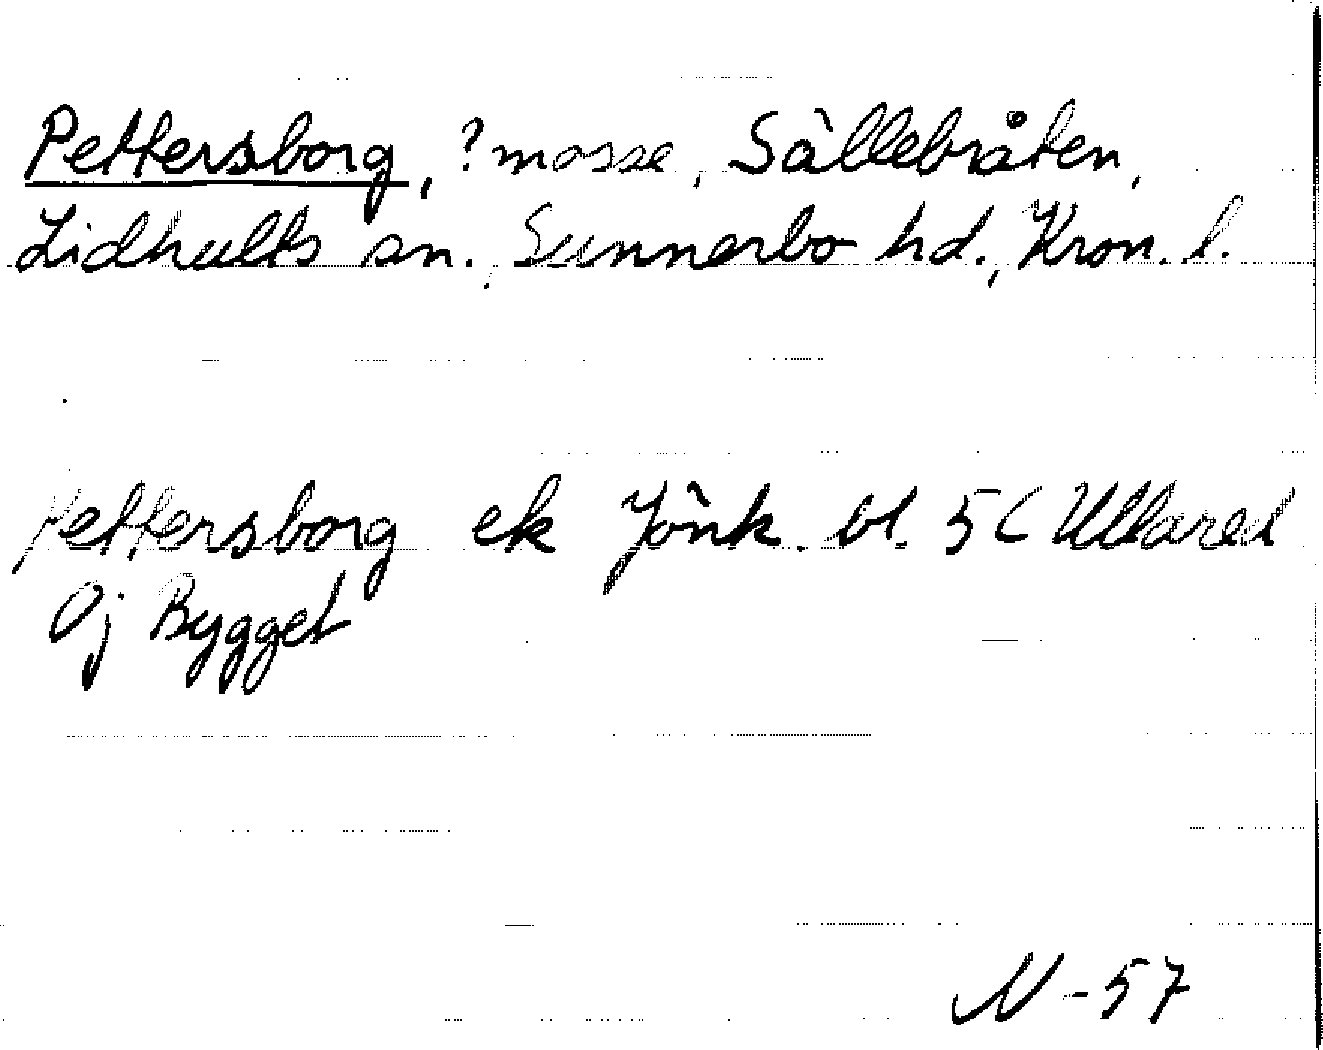 Pettersborg, ?mosse, Sällebråten,
Lidhults sn., Sunnerbo hd., Kron. l.
Pettersborg ek Jönk. bl. 5C Ullared
Oj Bygget
N-57